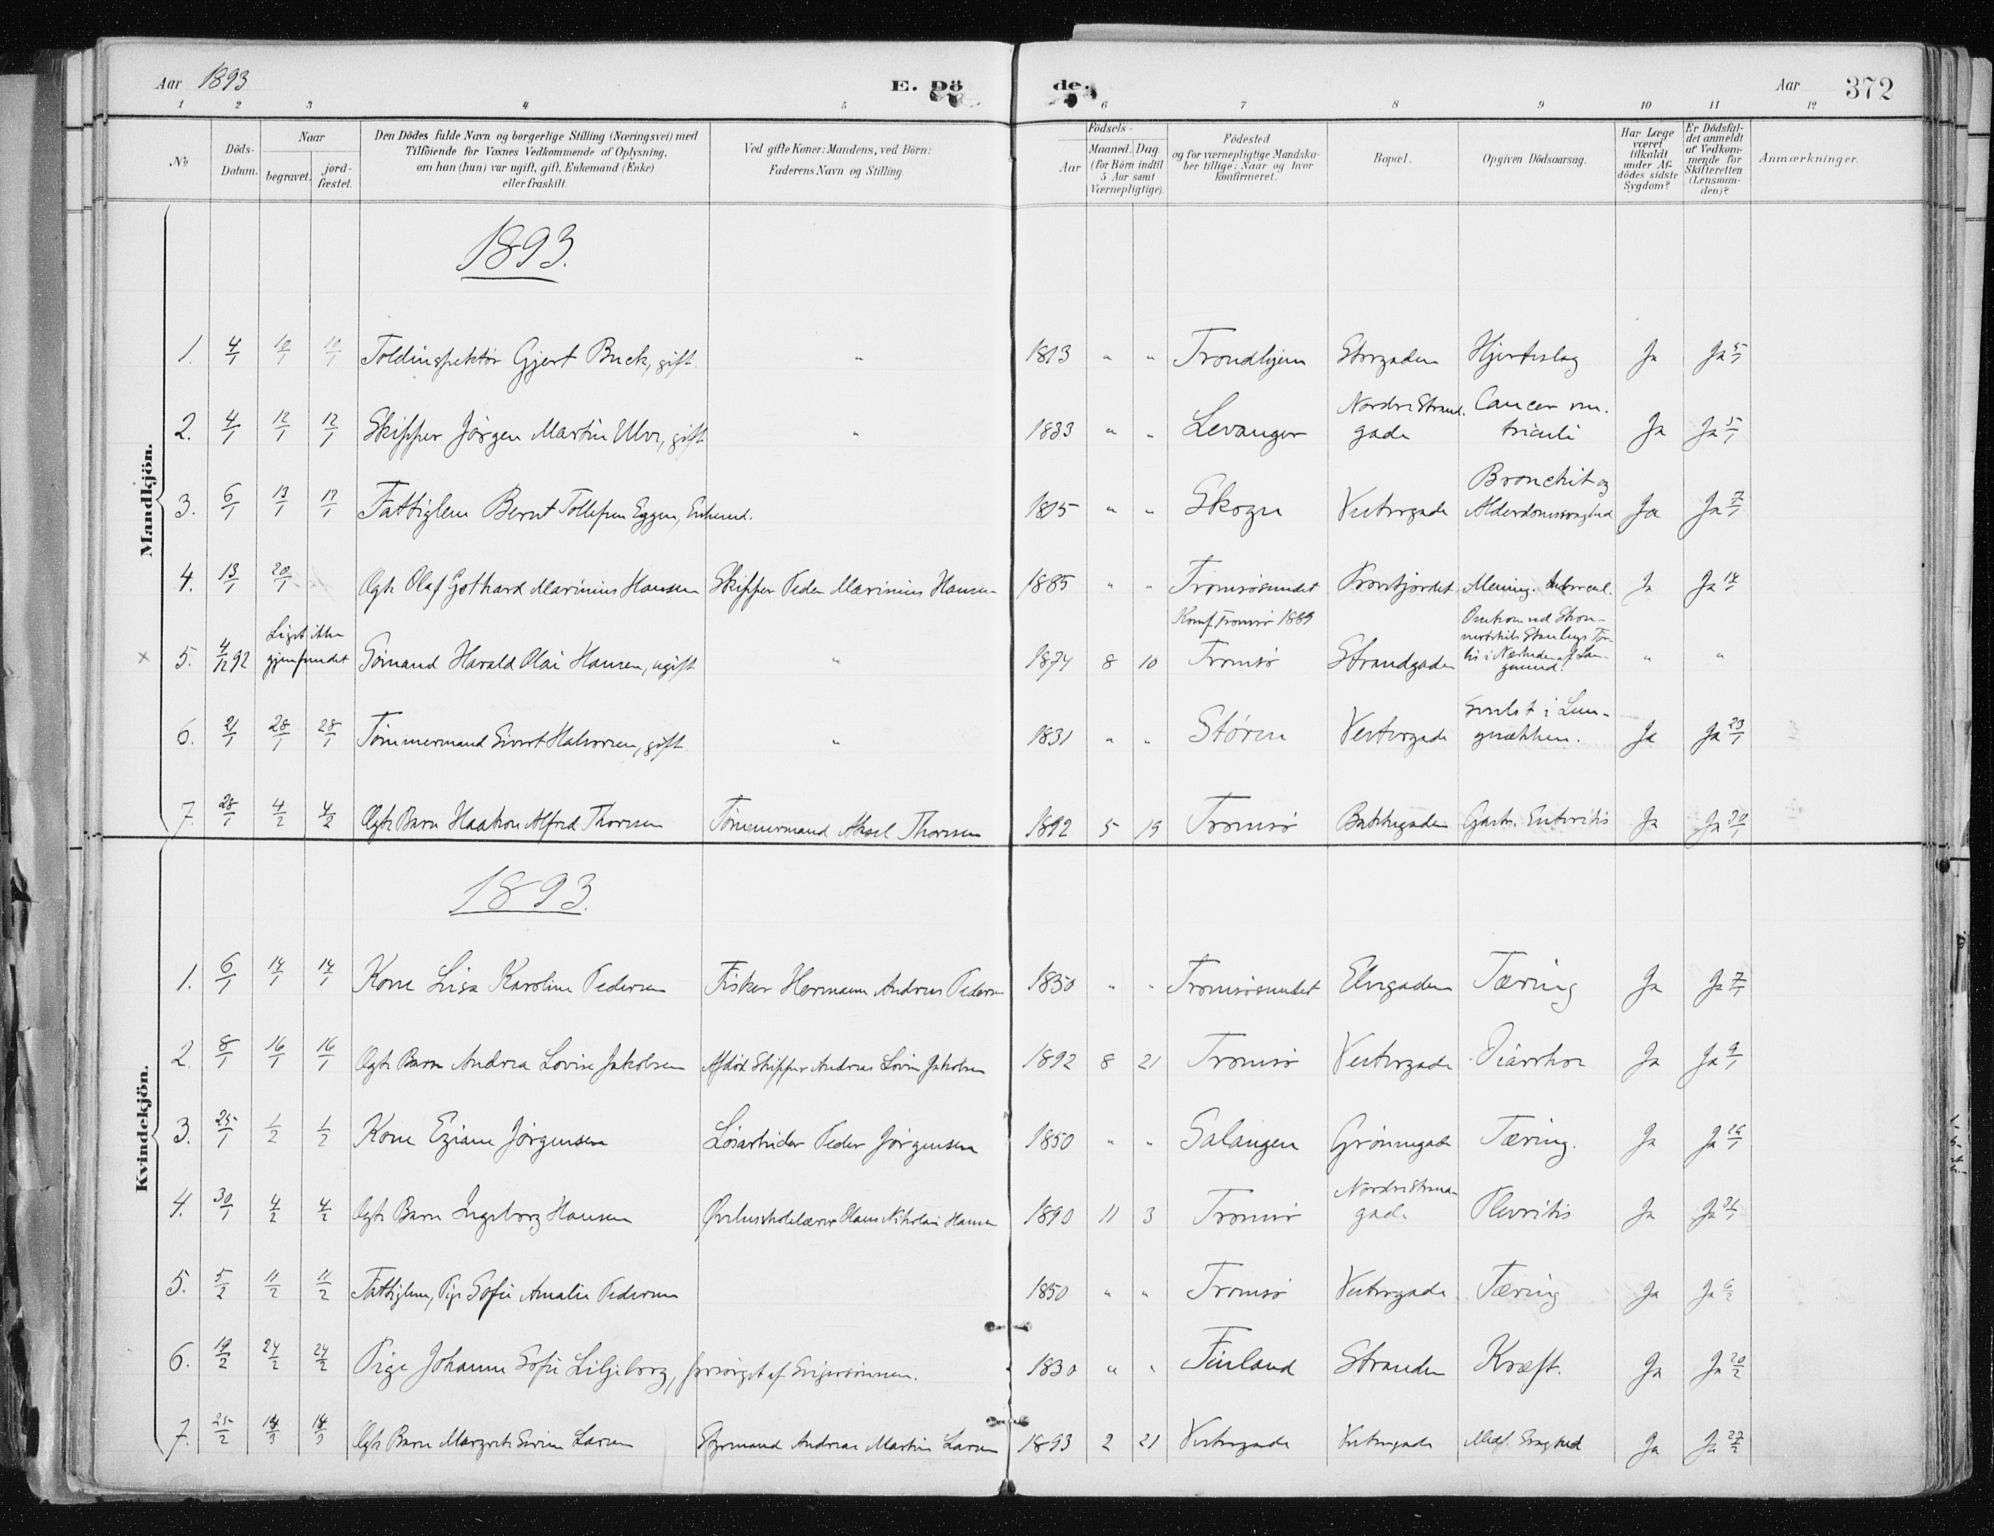 Aar 1893 E. Dö de. Aar 372
1 2 3 4 5 6 7 8 9 10 11 12
No
Döds-
Datum.
Naar
begravet.
jord-
fæstet.
Den Dödes fulde Navn og borgerlige Stilling (Næringsvei) med
Tilföiende for Voxnes Vedkommende af Oplysning,
om han (hun) var ugift, gift, Enkemand (Enke)
eller fraskilt.
Ved gifte Koner: Mandens, ved Börn:
Faderens Navn og Stilling.
Födsels-
Aar
Maaned. Dag
(for Börn indtil
5 Aar samt
Værnepligtige).
Födested
og for værnepligtige Mandska-
ber tillige: Naar og hvor
konfirmeret.
Bopæl.
Opgiven Dödsaarsag.
Har Læge
været
tilkaldt
under Af-
dödes sidste
Sygdom?
Er Dödsfal-
det anmeldt
af Vedkom-
mende for
Skifteretten
(Lensman-
den)?
Anmærkninger.
Mandkjön.
1893.
1. 4/1 Toldinspektør Gjert Buck, gift. " 1813 " " Trondhjem Storgaden Hjerteslag Ja Ja 5/1
2. 4/1 12/1 12/1 Skipper Jørgen Martin Ulve, gift " 1833 " " Levanger Nordre Strand- Cancer ven-
gade triculi Ja Ja 5/1
3. 6/1 13/1 13/1 Fattiglem Bernt Tollefsen Eggen, Enkemd. 1815 " " Skogn Vestergade Bronchit og
Alderdomssvaghed Ja Ja 7/1
4. 13/1 20/1 Ægte Olaf Gothard Marinius Hansen Skipper Peder Marinius Hansen 1885 " " Tromsøsundet Mening. tubercul. Ja Ja 14/1
5. 4/12 92 Liget ikke
gjenfundet Sømand Harald Olai Hansen, ugift " 1874 8 10 Konf. Tromsø 1889
Tromsø Strandgaden Omkom ved " "
6. 21/1 28/1 28/1 Tømmermand Sivert Halvorsen, gift " 1831 " " Støren Vestergade Svulst i Lun-
Ja Ja 23/1
7. 28/1 4/2 4/2 Ægte Barn Haakon Alfred Thoresen Tømmermand Aksel Thoresen 1892 5 19 Tromsø Bakkegaden Gastr. Enteritis Ja Ja 30/1
Kvindekjön.
1893.
1. 6/1 14/1 14/1 Kone Lisa Karoline Pedersen Fisker Hermann Andreas Pedersen 1850 " " Tromsøsundet Elvegaden Tæring Ja Ja 7/1
2. 8/1 16/1 16/1 Ægte Barn Andrea Lovise Jakobsen Afdød Skipper Andreas Jakobsen 1892 8 21 Tromsø Vestergade Diarrhoe Ja Ja 9/1
3. 25/1 1/2 1/2 Kone Jørgensen Løsarbeider Peder Jørgensen 1850 " " Salangen Grønnegade Tæring. Ja Ja 26/1
4. 30/1 4/2 4/2 Ægte Barn Ingeborg Hansen Øvelsesskolelærer Hans Nikolai Hansen 1890 11 3 Tromsø Nordre Strand-
gade Plevritis Ja Ja 31/1
5. 5/2 11/2 11/2 Fattiglem, Pige Sofie Amalie Pedersen 1850 " " Tromsø Vestergade Tæring Ja Ja 6/2
6. 19/2 24/2 24/2 Pige Johanne Sofie Liljeborg, forsørget af Svigersønnen. 1830 " " Finland Stranden Kræft. Ja Ja 20/2
7. 25/2 Ægte Barn Margrete Larsen Styrmand Andreas Martin Larsen 1893 2 21 Vestergade Vestergade Medf. Svaghed Ja Ja 27/2